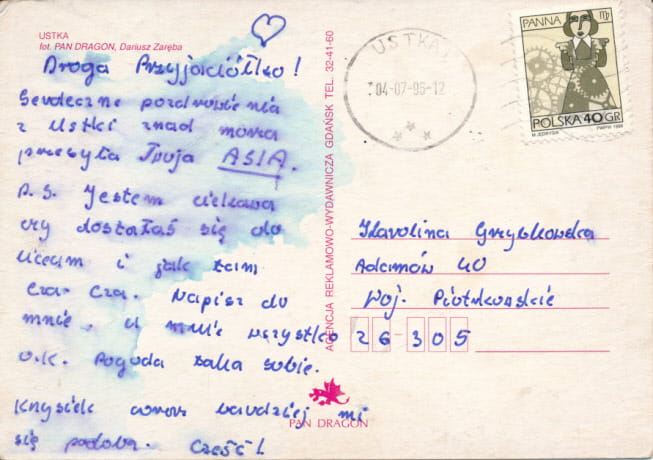 USTKA
fot. PAN DRAGON, Dariusz Zaręba
Droga Przyjaciółko!
Serdeczne pozdrowienia
z Ustki znad morza
przesyła Twoja ASIA.
P.S. Jestem ciekawa
czy dostałaś się do
Liceum i jak tam
cza-cza. Napisz do
mnie. U mnie wszystko
o.k. Pogoda taka sobie.
Krysiek coraz bardziej mi
się podoba. Cześć!
AGENCJA REKLAMOWO-WYDAWNICZA GDAŃSK TEL. 32-41-60
PAN DRAGON
USTKA
04-07-96-12
PANNA
POLSKA 40 GR
M. JĘDRYSIK PWPW 1996
Karolina Grzybkowska
Adamów 40
Woj. Piotrkowskie
26-305